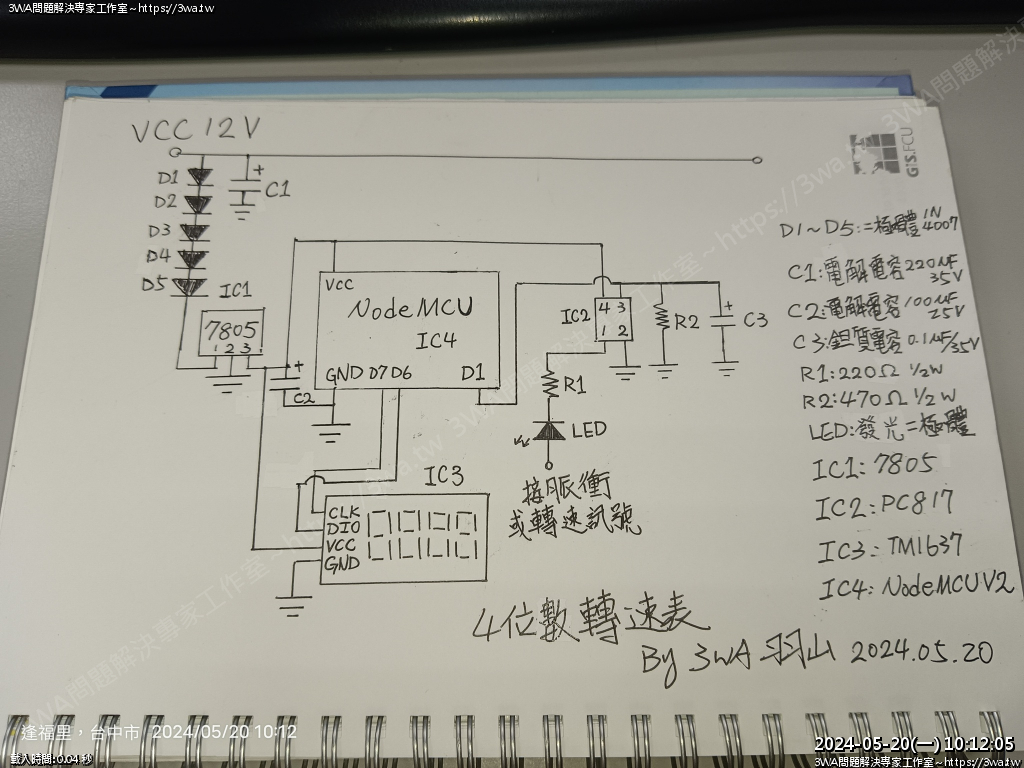 3WA問題解決專家工作室~https://3wa.tw
VCC 12V
GIS.FCU
D1
C1
D2
D3
D4
D5
IC1
7805
1 2 3
C2
VCC
NodeMCU
IC4
GND D7 D6 D1
IC2
4 3
1 2
R2
C3
R1
LED
接脈衝
或轉速訊號
IC3
CLK
DIO
VCC
GND
D1~D5:二極體 1N4007
C1:電解電容 220uF 35V
C2:電解電容 100uF 25V
C3:鉭質電容 0.1uF/35V
R1:220Ω 1/2W
R2:470Ω 1/2W
LED:發光二極體
IC1:7805
IC2:PC817
IC3:TM1637
IC4:NodeMCU V2
4位數轉速表
By 3WA 羽山 2024.05.20
逢福里,台中市 2024/05/20 10:12
載入時間:0.04 秒
2024-05-20(一) 10:12:05
3WA問題解決專家工作室~https://3wa.tw